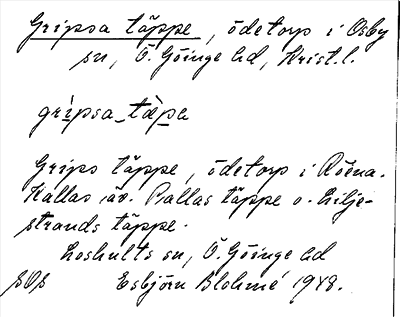 Gripsa täppe, ödetorp i Osby
sn, Ö. Göinge hd, Krist. l.
grìpsa_tæ̀pa
Grips täppe, ödetorp i Röena.
Kallas äv. Pallas täppe o. Lilje-
strands täppe.
Loshults sn, Ö. Göinge hd
SOs Esbjörn Blohmé 1948.